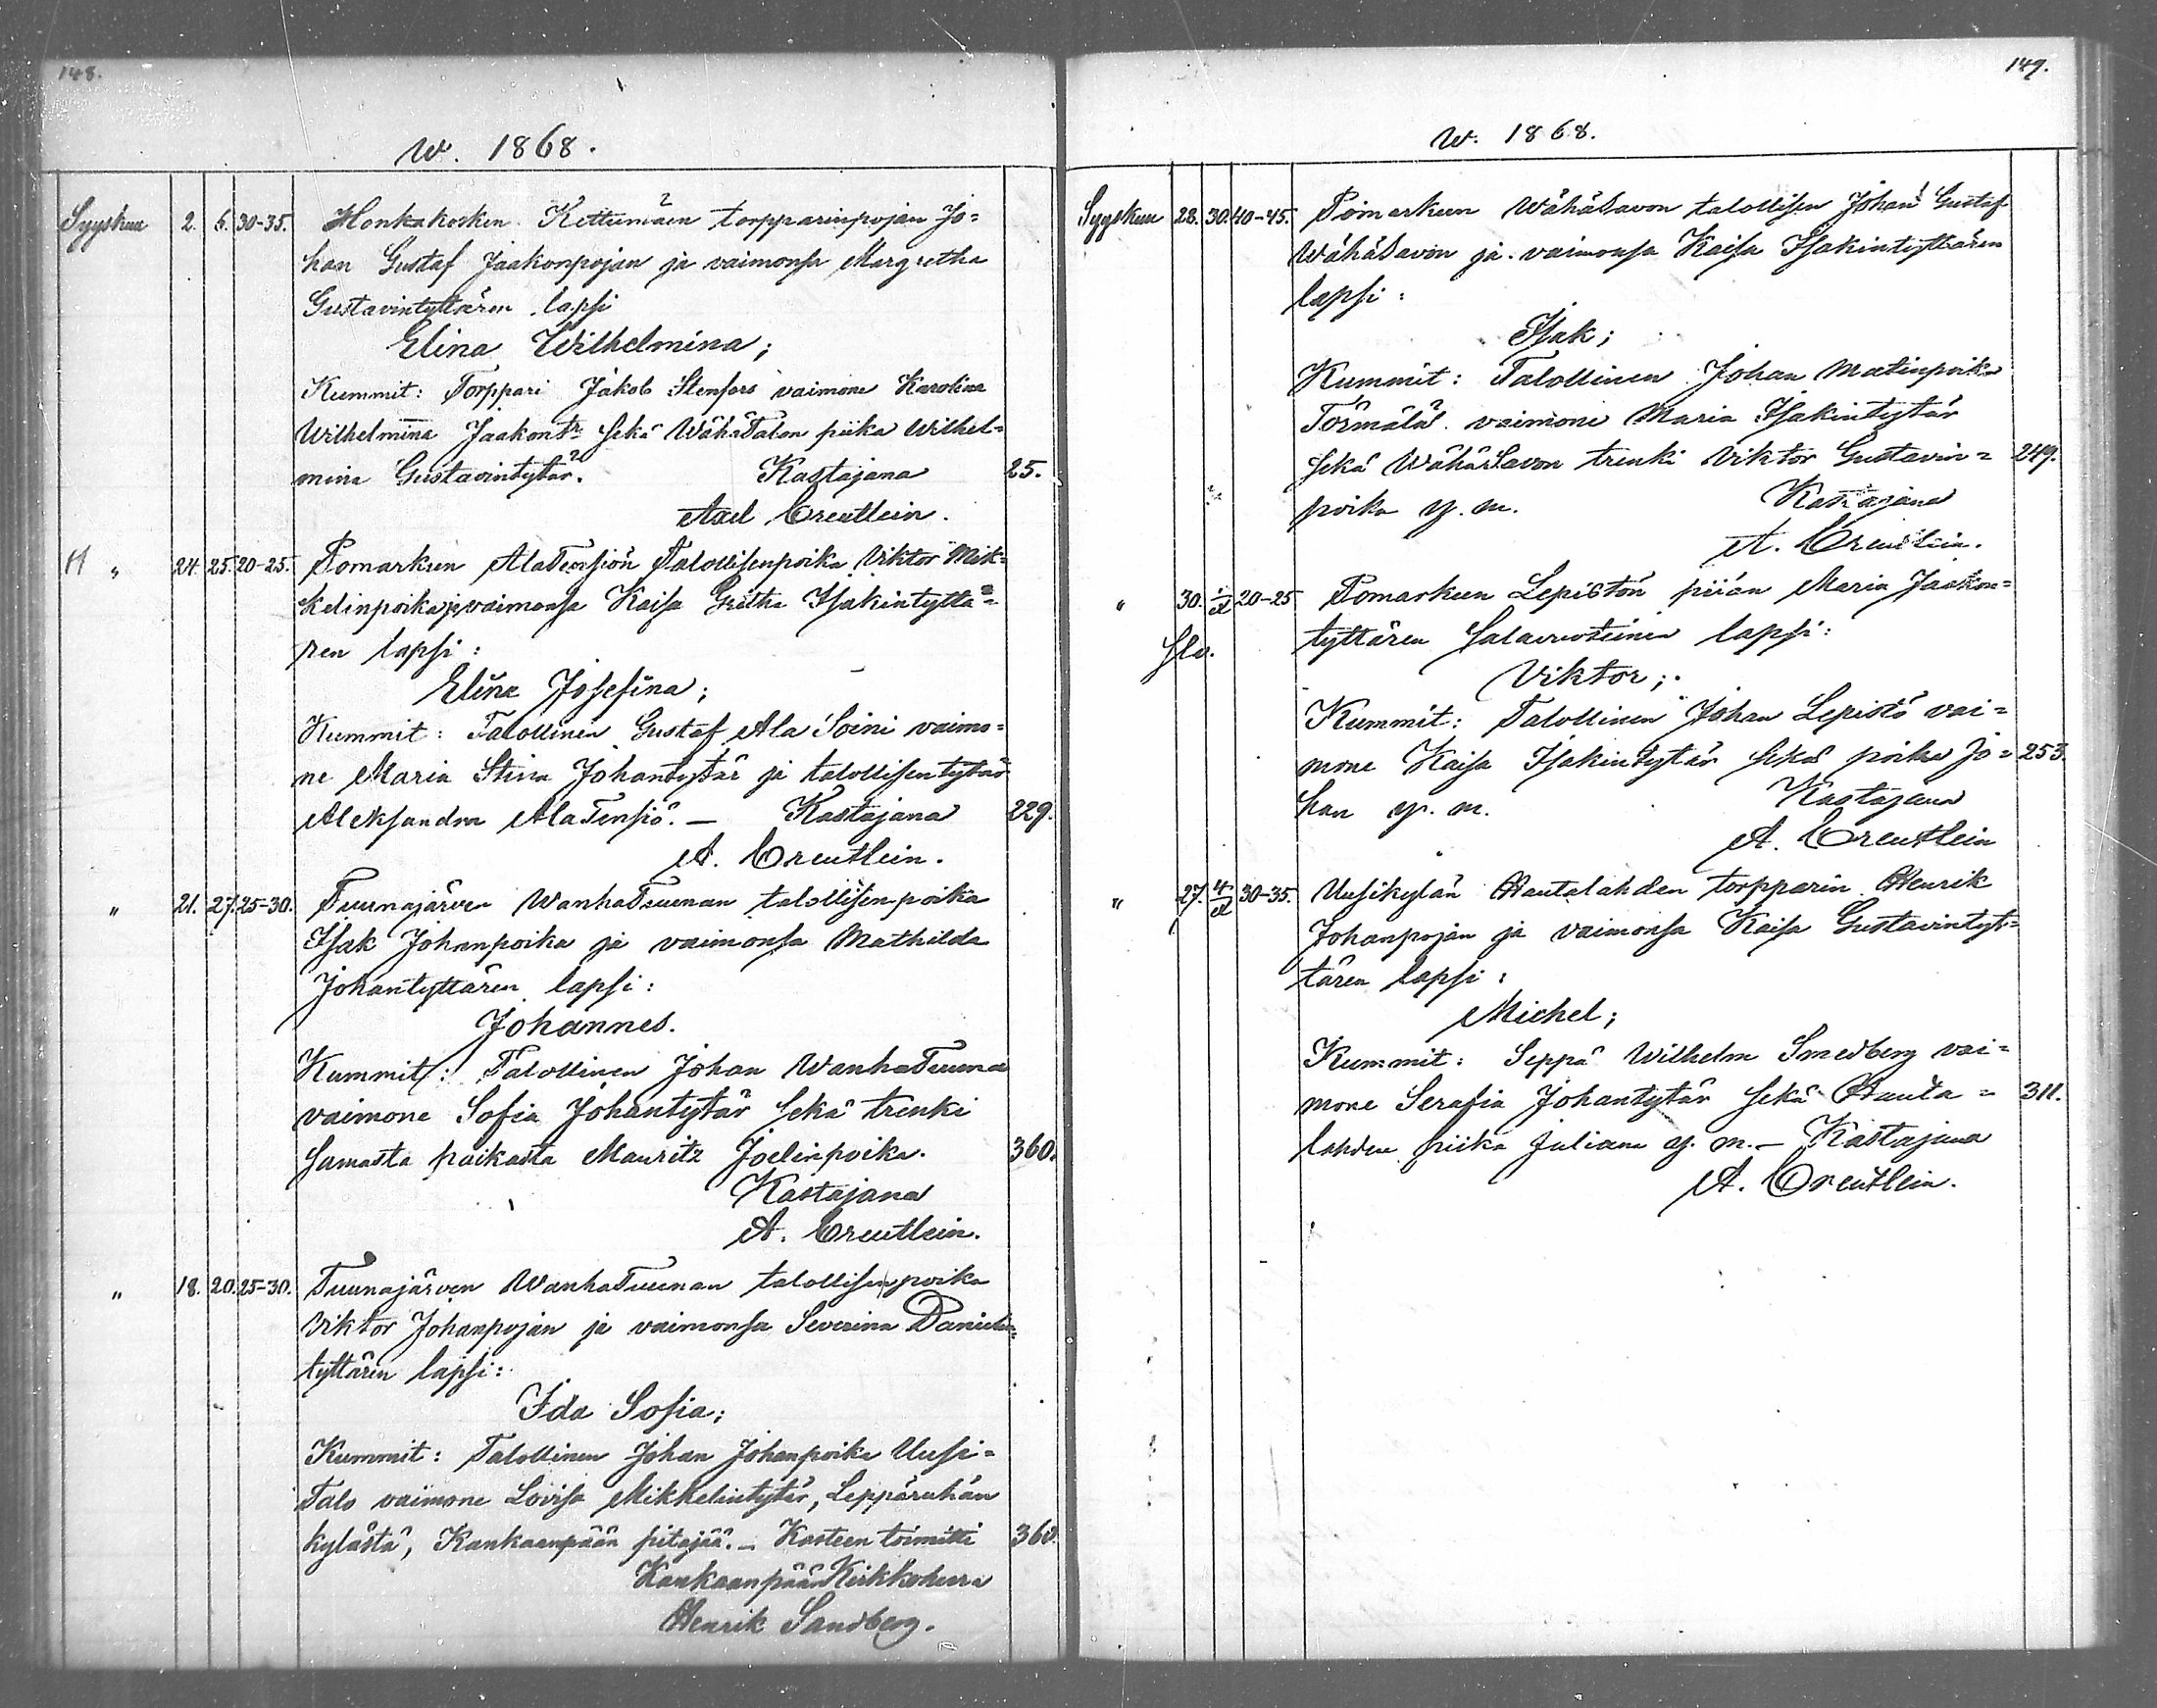 148.
w. 1868.
Syyskuu 2. 6. 30-35. Honkakosken Kettumäen torpparinpojan Jo=
han Gustaf Jaakonpojan ja vaimonsa Margretha
Gustavintyttären lapsi
Elina Wilhelmina;
Kummit: Torppari Jakob Stenfors vaimone Karolina
Wilhelmina Jaakont: sekä WähäTalon piika Wilhel=
mina Gustavintytär. Kastajana 25.
Axel Creutlein.
" 24. 25. 20-25. Pomarkun Talollisenpoika Viktor Mik=
kelinpoika ja vaimonsa Kaisa Greetha Isakintyttä=
ren lapsi:
Elina Josefina;
Kummit: Talollinen Gustaf Ala Soini vaimo=
ne Maria Stina Johantytär ja talollisentytär
Aleksandra AlaTensiö. — Kastajana 229.
A. Creutlein.
" 21. 27. 25-30. Tuunajärven WanhaTuunan talollisenpoika
Isak Johanpoika ja vaimonsa Mathilda
Johantyttären lapsi:
Johannes.
Kummit: Talollinen Johan WanhaTuuna
vaimone Sofia Johantytär sekä trenki
samasta paikasta Mauritz Joelinpoika. 360.
Kastajana
A. Creutlein.
" 18. 20. 25-30. Tuunajärven WanhaTuunan talollisenpoika
Viktor Johanpojan ja vaimonsa Severina Danielin=
tyttären lapsi:
Ida Sofia;
Kummit: Talollinen Johan Johanpoika Uusi=
Talo vaimone Lovisa Mikkelintytär, Leppäruhan
kylästä, Kankaanpään pitäjää. — Kasteen toimitti 360.
Kankaanpään Kirkkoherra
Henrik Sandberg.
149.
w. 1868.
Syyskuu 28. 30. 40-45. Pomarkun WähäSavon talollisen Johan Gustaf
WähäSavon ja vaimonsa Kaisa Isakintyttären
lapsi:
Isak;
Kummit: Talollinen Johan Matinpoika
Törmälä vaimone Maria Isakintytär
sekä WähäSavon trenki Viktor Gustavin= 249.
poika y. m. Kastajana
A. Creutlein.
" 30. 20-25 Pomarkun Lepistön piian Maria Jaakon=
tyttären salavuoteinen lapsi:
Slv.
Viktor;
Kummit: Talollinen Johan Lepistö vai=
mone Kaisa Isakintytär sekä poika Jo= 253.
han y. m. Kastajana
A. Creutlein
" 27. 30-35. Uusikylän Hautalahden torpparin Henrik
Johanpojan ja vaimonsa Kaisa Gustavintyt=
tären lapsi:
Michel;
Kummit: Seppä Wilhelm Smedberg vai=
mone Serafia Johantytär sekä Hauta= 311.
lahden piika Juliana y. m. — Kastajana
A. Creutlein.